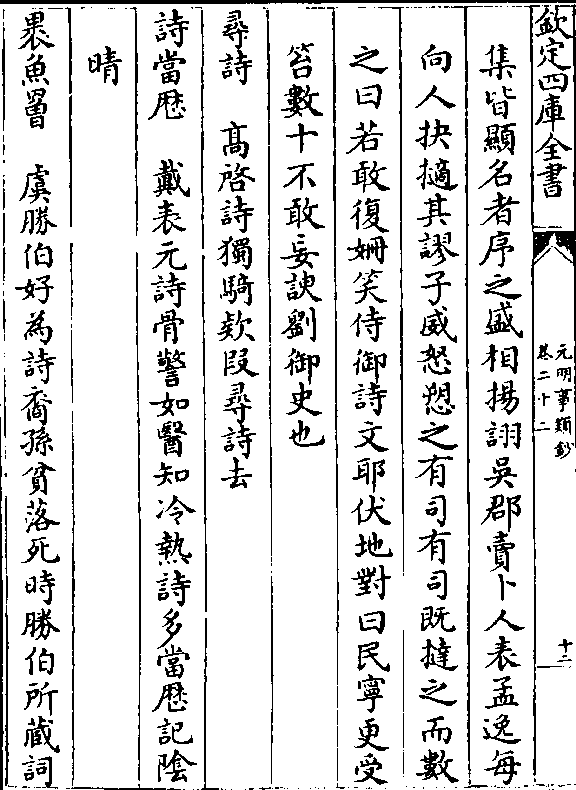 欽定四庫全書
元明事類鈔
卷二十二
十二
集皆顯名者序之盛相揚詡吳郡賣卜人袁孟逸每
向人抉擿其謬子威怒愬之有司有司既撻之而數
之曰若敢復姍笑侍御詩文耶伏地對曰民寧更受
笞數十不敢妄諛劉御史也
尋詩　髙啓詩獨騎欵叚尋詩去
詩當歴　戴表元詩骨警如醫知冷熱詩多當歴記陰
晴
褁魚罾　虞勝伯好為詩裔孫貧落死時勝伯所蔵詞